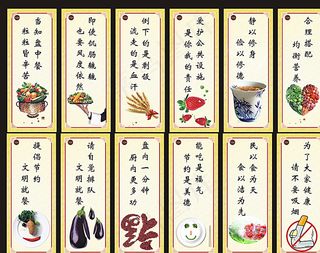 当知盘中餐
粒粒皆辛苦
即使饥肠辘辘
也要风度依然
倒下的是剩饭
流走的是血汗
爱护公共设施
是你我的责任
静以修身
俭以修德
合理搭配
均衡营养
提倡节约
文明就餐
请自觉排队
文明就餐
盘内一分钟
厨内更多功
能吃是福气
节约是美德
民以食为天
食以洁为先
为了大家健康
请不要吸烟